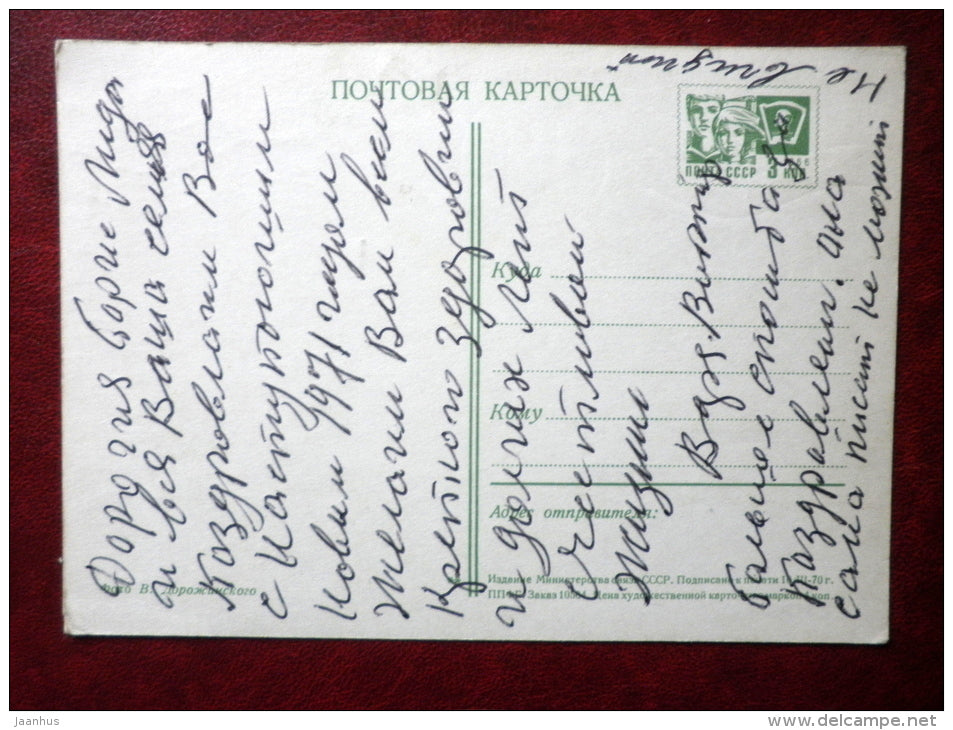 ПОЧТОВАЯ КАРТОЧКА
ПОЧТА СССР
3 КОП
Куда
Кому
Адрес отправителя:
Фото В. Дорожинского
Издание Министерства связи СССР. Подписано к печати III-70 г.
ППФГ. Заказ Цена художественной карточки с маркой 4 коп.
Дорогия Борис Лида
и вся Ваша семья
Поздровлаем Вас
с Наступающим
Новим 1971 годом
Желаем Вам всем
Крепкого здоровия
и долгих лет
счетливой
Жизни
Вздя. Виктор
Поздравлении. она
сама писат не может
не видит
Jaanhus
www.delcampe.net